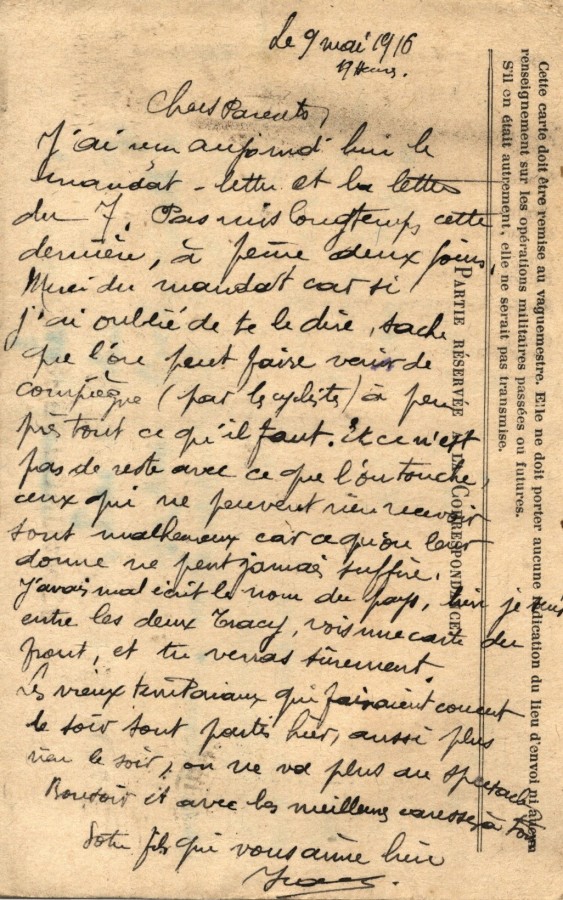 Le 9 mai 1916
17 heures.
Chers Parents,
J'ai reçu aujourd'hui le
mandat-lettre et la lettre
du 7. Pas mis longtemps cette
dernière, à peine deux jours.
Merci du mandat car si
j'ai oublié de te le dire, sache
que l'on peut faire venir de
Compiègne (par les cyclistes) à peu
près tout ce qu'il faut. Et ce n'est
pas de reste avec ce que l'on touche,
ceux qui ne peuvent rien recevoir
sont malheureux car ce qu'on leur
donne ne peut jamais suffire.
J'avais mal écrit le nom du pays, je suis
entre les deux Tracy, vois une carte du
front, et tu verras sûrement.
Les vieux territoriaux qui faisaient concert
le soir sont partis hier, aussi plus
rien le soir, on ne va plus au spectacle.
Bonsoir et avec les meilleures caresses à tous
Votre fils qui vous aime bien
Cette carte doit être remise au vaguemestre. Elle ne doit porter aucune indication du lieu d'envoi ni aucun
renseignement sur les opérations militaires passées ou futures.
S'il en était autrement, elle ne serait pas transmise.
PARTIE RÉSERVÉE A LA CORRESPONDANCE